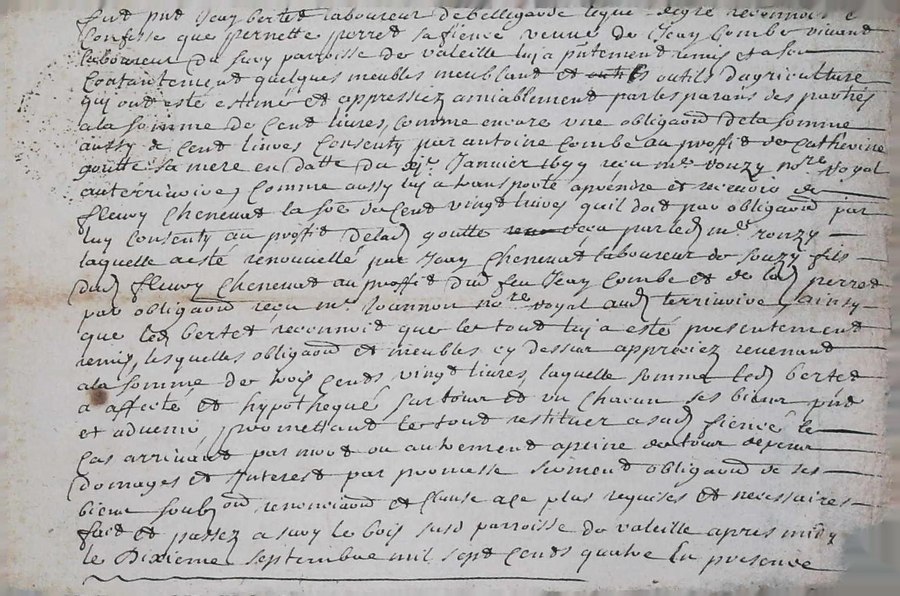 fut pnt Jean bertet laboureur de bellegarde lequel de gre reconnoit &
Confesse que pernette perret sa fiencé veuve de Jean Combe vivant
laboureur du sury parroisse de valeille luy a pntement remis et a son
Contantement quelques meubles meublant et outils d'agriculture
qui ont esté estimé et appressiez amiablement par les parans des parties
a la somme de Cent livres, Comme encore une obligaon de la somme
aussy de Cent livres Consenty par antoine Combe au proffit de Catherine
goutte sa mere en datte du Janvier 1699 reçu me rouzy nore royal
au terrinoire, Comme aussy luy a transporté a prendre et recevoir de
fleury Chenevat la soe de Cent vingt livres qu'il doit par obligaon par
luy Consenty au profit de lad goutte reçu par led me rouzy
laquelle a esté renouvellé par Jean Chenevat laboureur de Souzy fils
dud fleury Chenevat au proffit dud feu Jean Combe et de lad perret
par obligaon reçu me Joannon nore royal aud terrinoire, ainsy
que led bertet reconnoit que le tout luy a esté presentement
remis, lesquelles obligaons et meubles cy dessus appreciez revenant
a la somme de trois Cents vingt livres, laquelle somme led bertet
a affecté et hypothequé sur tous et un Chacun ses biens pnt
et advenir promettant le tout restituer a sad fiencé le
Cas arrivant par mort ou autrement a peine de tous depens
domages et Interest par promesse serment obligaon de ses
biens soubon renonciaon et Clause a ce plus requises et necessaires
fait et passez a sury le bois susd parroisse de valeille apres midy
le Dixieme septembre mil sept Cents quatre En presence